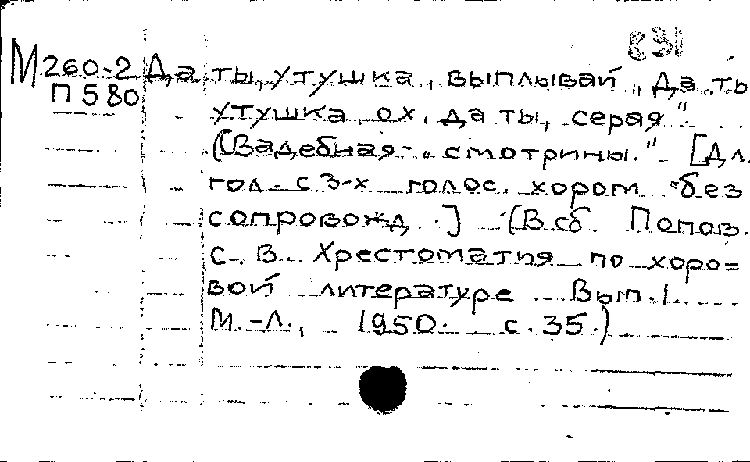 831
М 260-2 Да ты, утушка, выплывай, да ты
П 580
утушка, ох, да ты, серая"
([Свадебная-„смотрины." [Дл.
гол. с 3-х голос. хором без
сопровожд.] (В сб. Попов.
С. В. Хрестоматия по хоро=
вой литературе Вып. 1.
М.-Л., 1950. с. 35.)